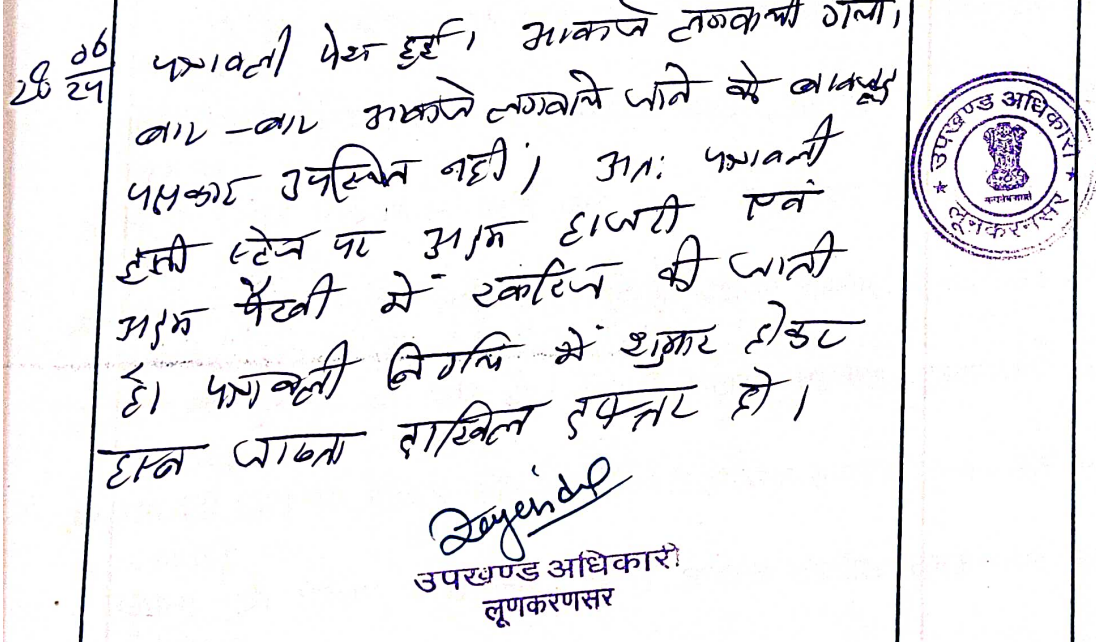 28 06/24 पत्रावली पेश हुई। आवाजे लगवायी गयी।
बार-बार आवाजे लगवाये जाने के बावजूद
पक्षकार उपस्थित नहीं। अतः पत्रावली
इसी स्टेज पर अदम हाजरी एवं
अदम पैरवी में खारिज की जाती
है। पत्रावली निर्णित में शुमार होकर
हस्ब जाब्ता दाखिल दफ्तर हो।
उपखण्ड अधिकारी
लूणकरणसर
उपखण्ड अधिकारी
लूणकरणसर